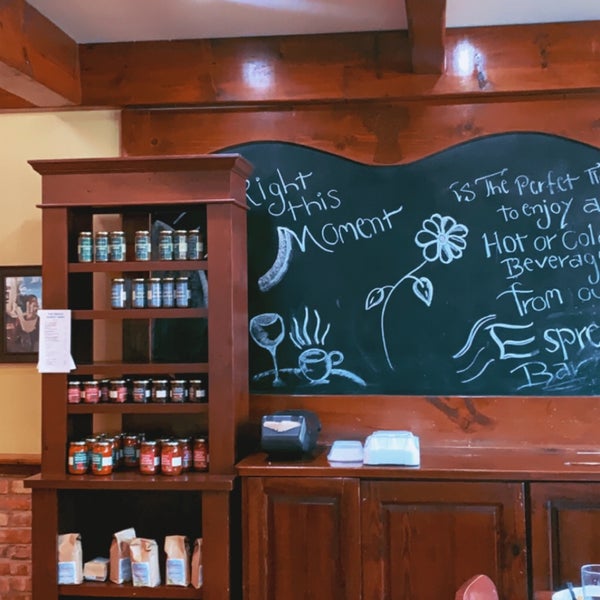 Right
this
Moment
is The Perfet
to enjoy a
Hot or Cold
Beverage
from our
Espre
Bar